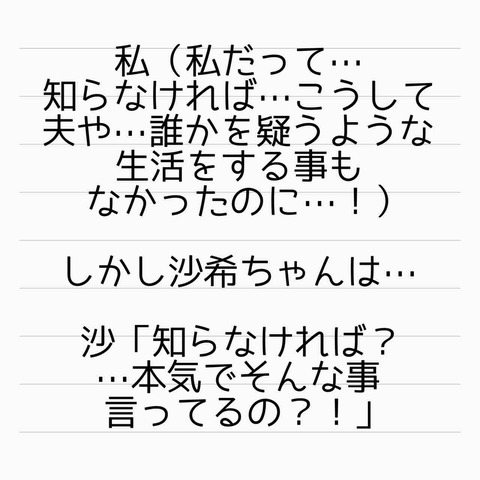 私（私だって…
知らなければ…こうして
夫や…誰かを疑うような
生活をする事も
なかったのに…！）
しかし沙希ちゃんは…
沙「知らなければ？
…本気でそんな事
言ってるの？！」